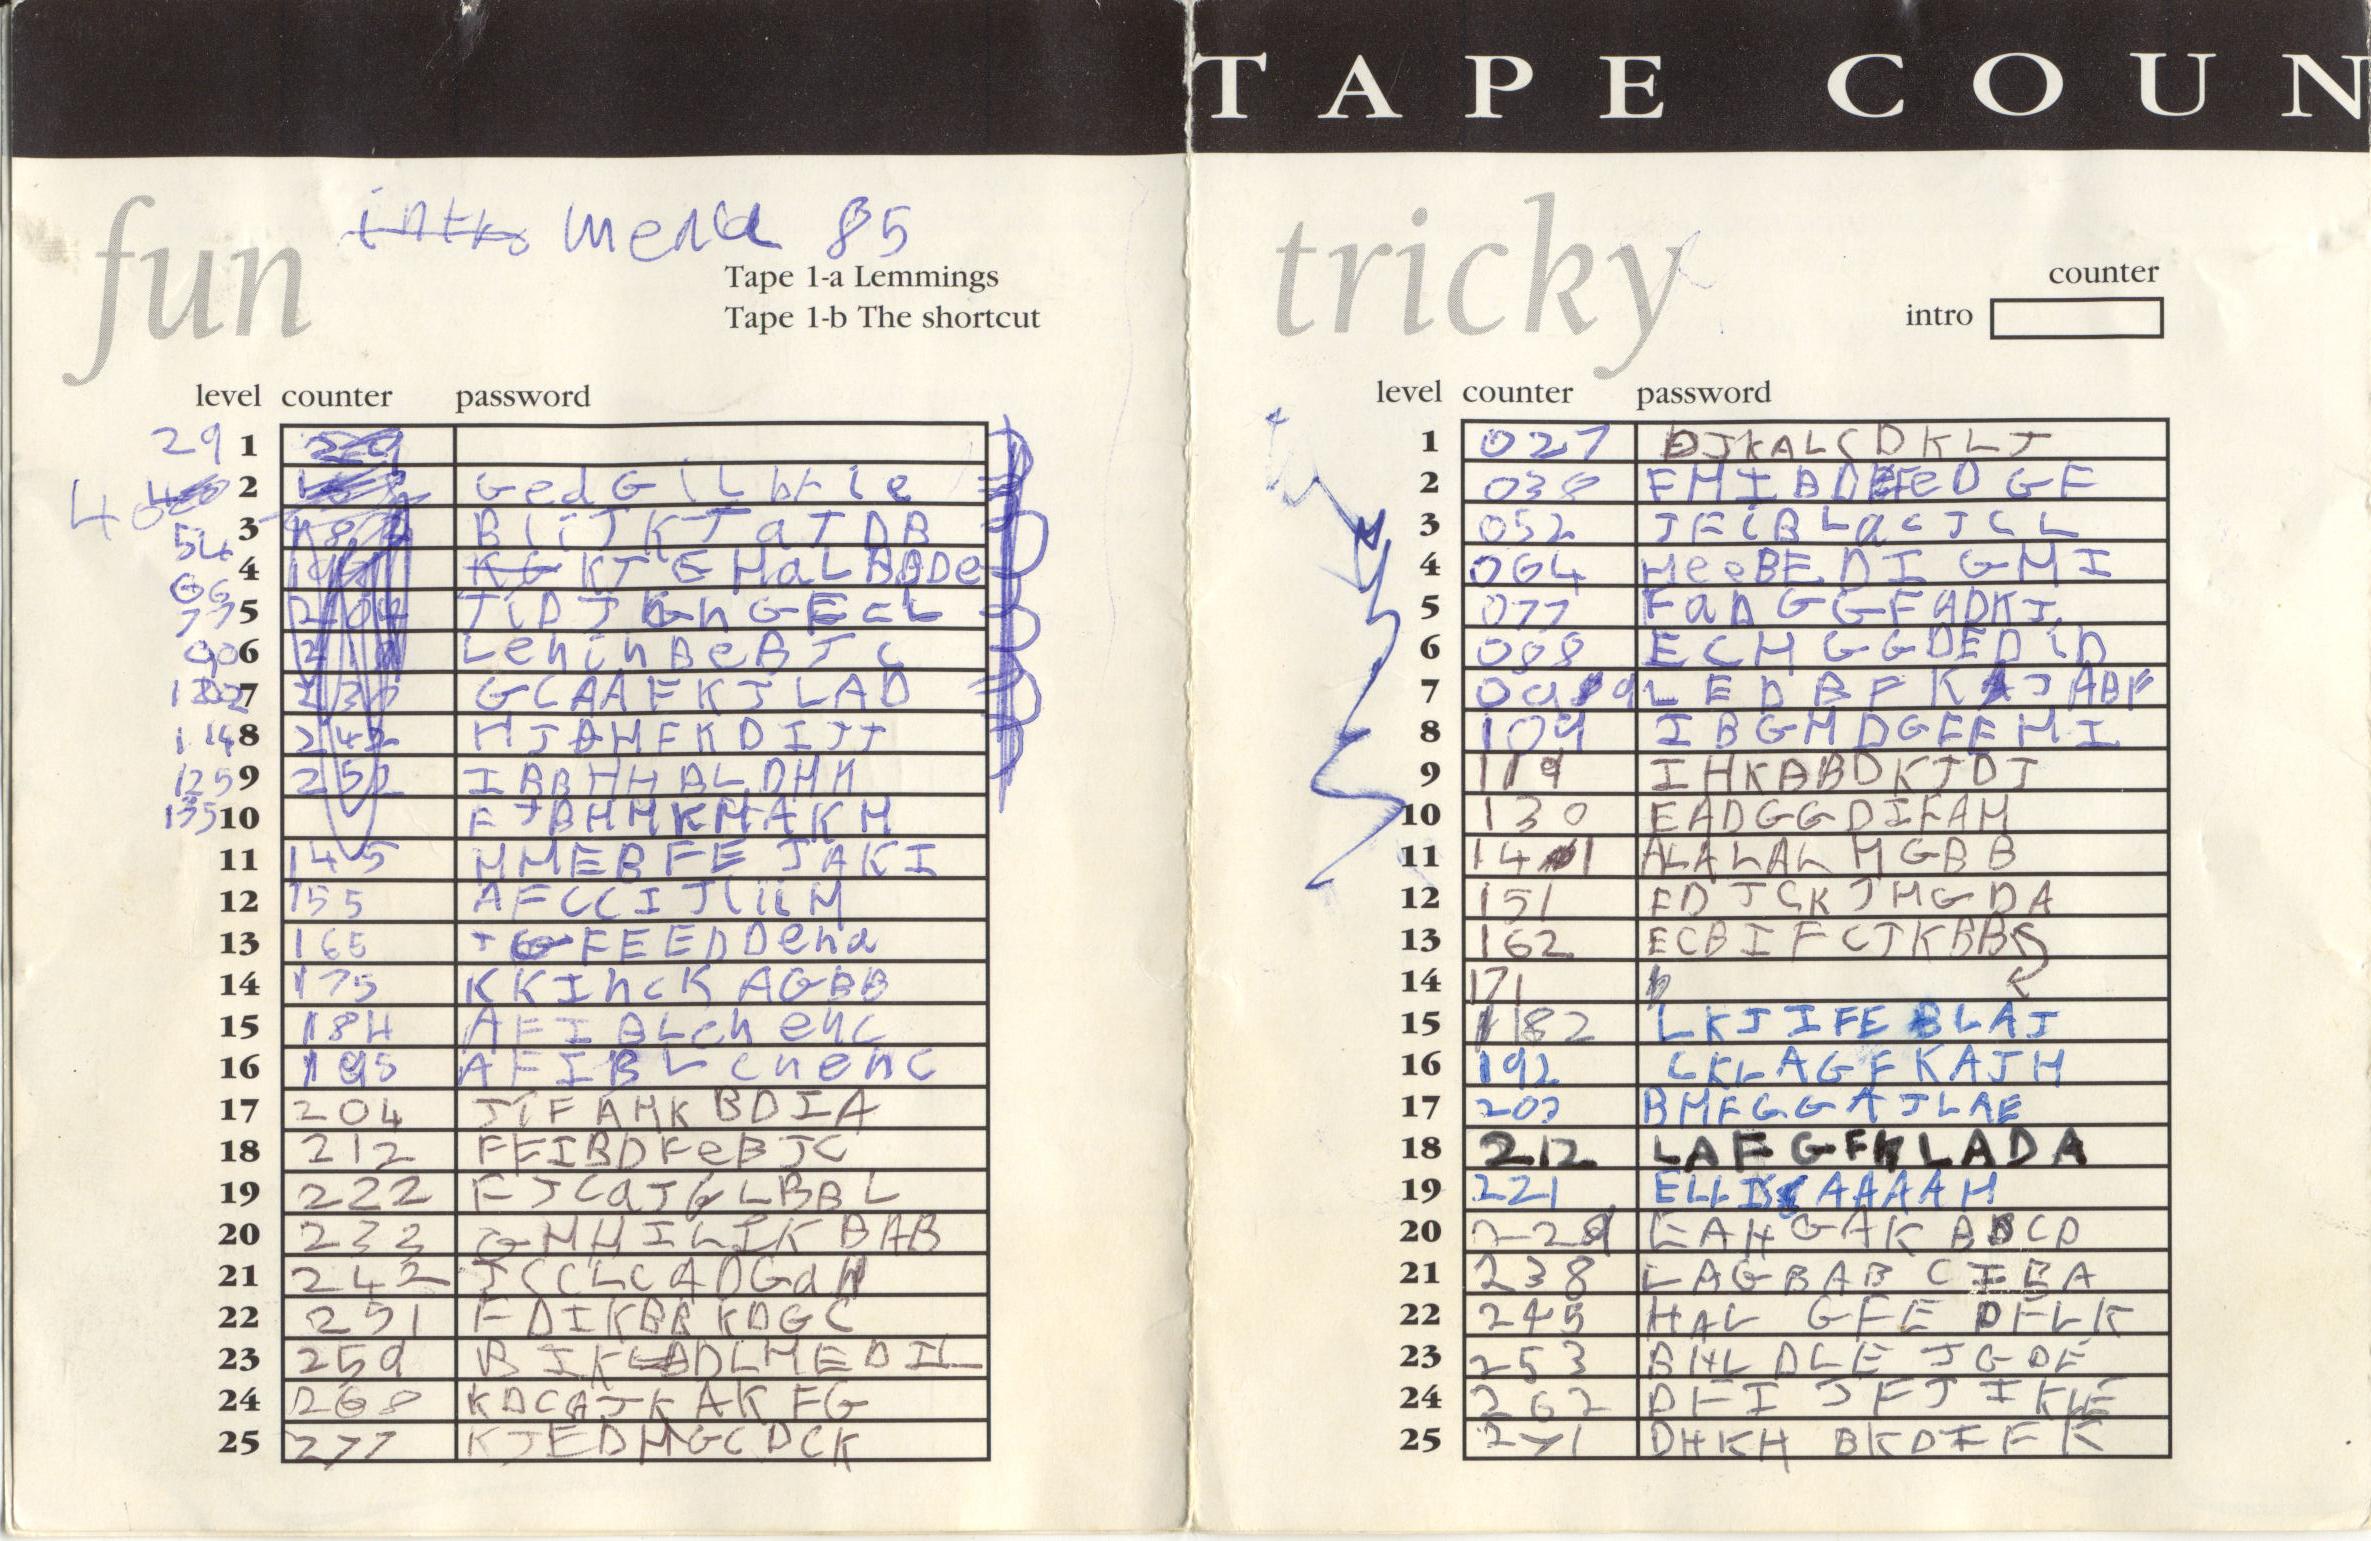 TAPE COUN
fun
menu 85
Tape 1-a Lemmings
Tape 1-b The shortcut
level counter password
29 1
2 GedGiLbFie
54 3 BliJKJaJDB
66 4 KJEHaLBADe
77 5 JiDJGhGEcL
90 6 LehihBeBJc
102 7 GCAAFKJLAD
8 242 HJAMFKDIJJ
125 9 252 IBBHHBLDHK
135 10 FJBHMKMAKM
11 145 MMEBFEJAKI
12 155 AFCCIJliiM
13 165 FEEDDeha
14 175 KKIhcKAGBB
15 184 AFIBLchehc
16 195 AFIBLcnenc
17 204 JiFAMKBDIA
18 212 FFIBDFeBJC
19 222 FJCaJGLBBL
20 233 GMHILIKBAB
21 242 JCCLCADGaH
22 251 FDIKBBKDGC
23 259 BIKDLMEDIL
24 268 KDCAJKAKFG
25 277 KJEDMGCDCK
tricky
counter
intro
level counter password
1 027 DJKALCDKLJ
2 038 FHIBDFeDGF
3 052 JFiBLacJCL
4 064 MeeBEDIGMI
5 077 FaDGGFADKJ
6 088 ECHGGDEDiD
7 LEDBFKJABF
8 109 IBGMDGEEMI
9 119 IHKBBDKJDJ
10 130 EADGGDIFAM
11 141 ALALALMGBB
12 151 FDJCKJMGDA
13 162 ECBIFCJKBB
14 171
15 182 LKJIFEBLAJ
16 192 CKLAGFKAJH
17 202 BMFGGAJLAE
18 212 LAFGFKLADA
19 221 ELLIKAAAAH
20 229 EAHGAKABCD
21 238 LAGBABCIBA
22 245 HALGFEDFLK
23 253 BHLDLEJGDF
24 262 DFIJFJIKLE
25 271 DHKHBKDIFK